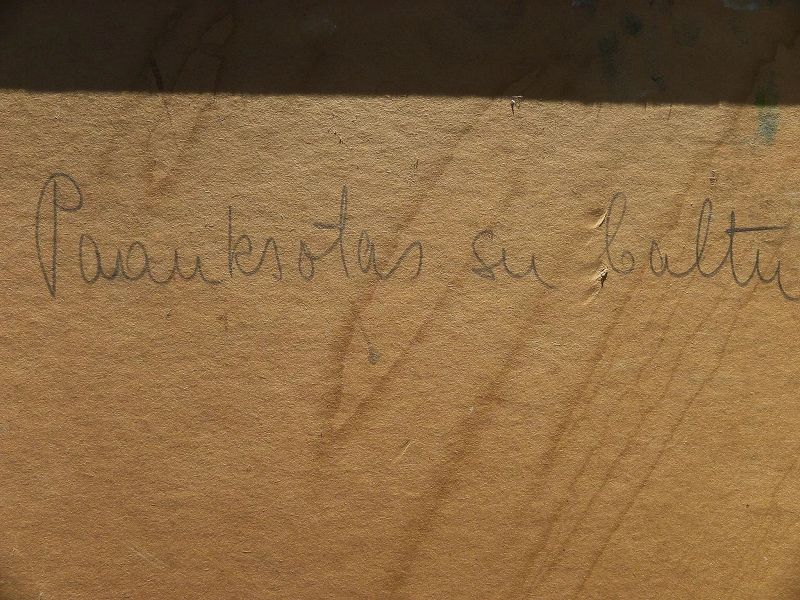 Paauksotas su baltu